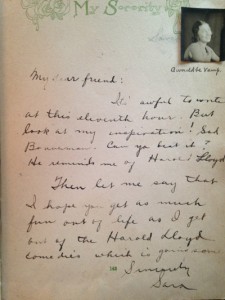 My Sorority
My dear friend:
It's awful to write
at this eleventh hour. But
look at my inspiration! Sad
Can ya beat it?
He reminds me of Harold Lloyd
Then let me say that
I hope you get as much
fun out of life as I get
out of the Harold Lloyd
comedies which is going some
Sincerely
Sara